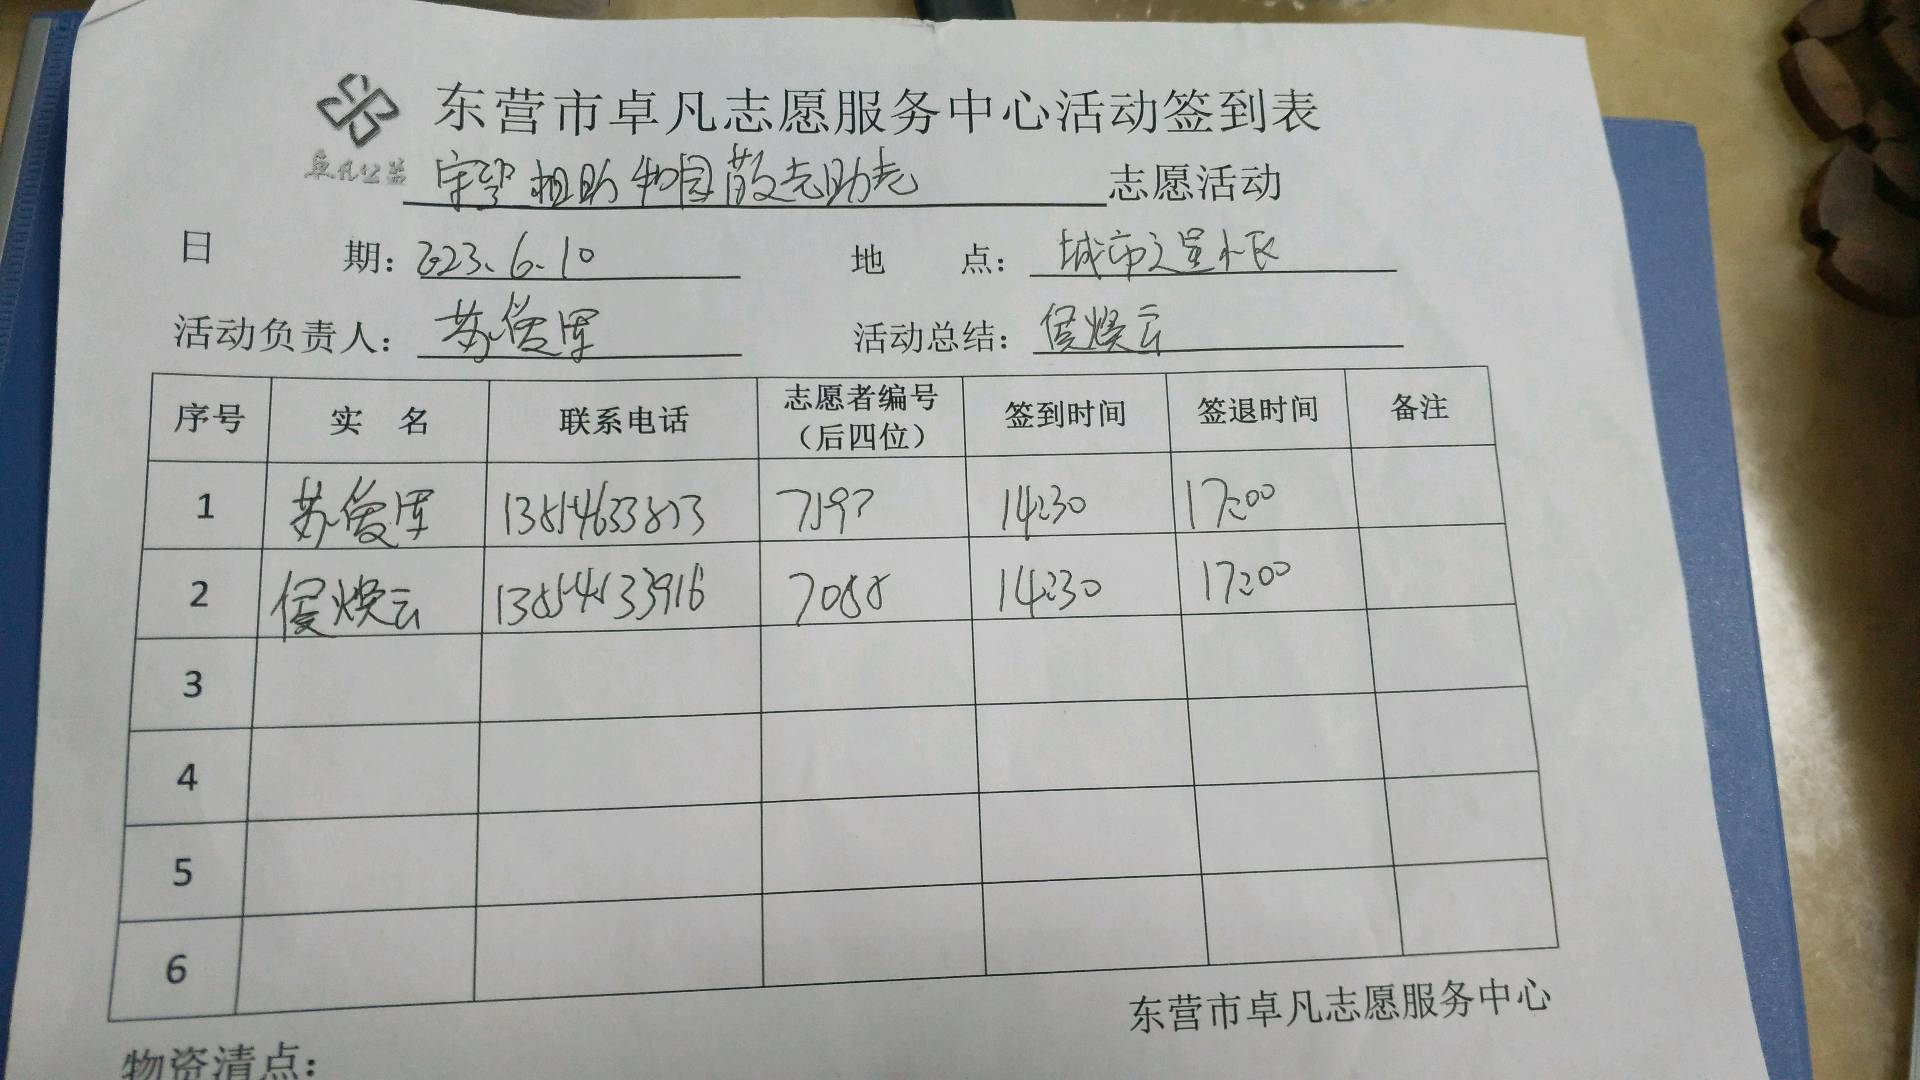 东营市卓凡志愿服务中心活动签到表
卓凡公益
守望相助 和园敬老助老 志愿活动
日期：2023.6.10 地点：城市之星小区
活动负责人：苏俊军 活动总结：侯焕云
序号 实名 联系电话 志愿者编号（后四位） 签到时间 签退时间 备注
1 苏俊军 7197 14:30 17:00
2 侯焕云 7088 14:30 17:00
3
4
5
6
东营市卓凡志愿服务中心
物资清点：